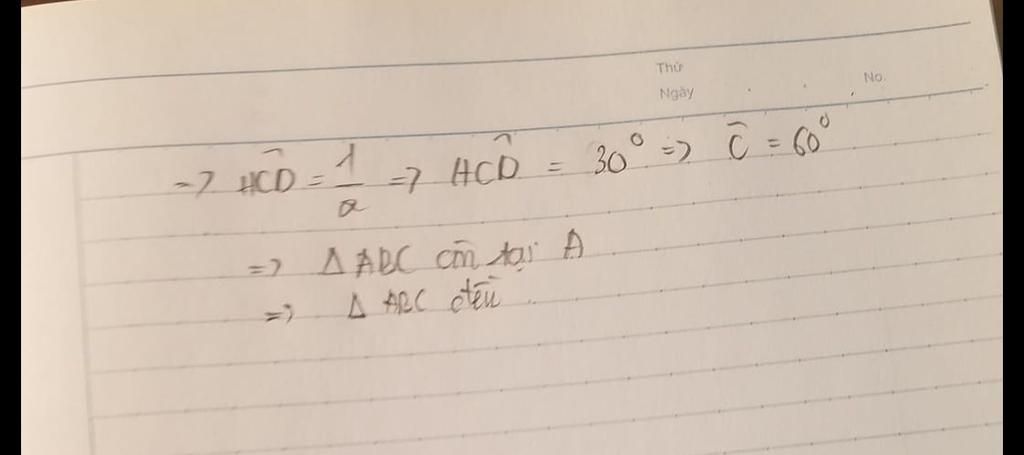 Thứ
Ngày
No.
=> HCD = 1/2 => HCD = 30° => C = 60°
=> Δ ABC cân tại A
=> Δ ABC đều